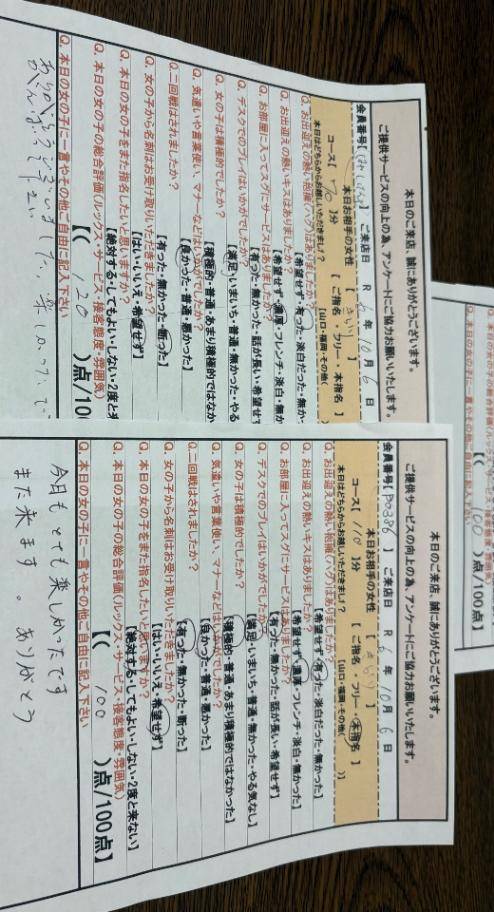 本日のご来店、誠にありがとうございます。
ご提供サービスの向上の為、アンケートにご協力お願いいたします。
会員番号【P0386】ご来店日 R 6年10月6日
本日お相手の女性【
コース【110】分【ご指名・フリー・本指名】
本日はどちらからお越しいただきまし?【山口・福岡・その他( )】
Q. お出迎えの熱い抱擁(ハグ)はありましたか?
【希望せず・有った・淡白だった・無かった】
Q. お出迎えの熱いキスはありましたか?
【希望せず・濃厚・フレンチ・淡白・無かった】
Q. お部屋に入ってスグにサービスはありましたか?
【有った・無かった・話が長い・希望せず】
Q. デスクでのプレイはいかがでしたか?
【満足・いまいち・普通・無かった・やる気なし】
Q. 女の子は積極的でしたか?
【積極的・普通・あまり積極的ではなかった】
Q. 気遣いや言葉使い、マナーなどはいかがでしたか?
【良かった・普通・悪かった】
Q. 二回戦はされましたか?
【有った・無かった・断った】
Q. 女の子から名刺はお受け取りいただきましたか?
【はい・いいえ・希望せず】
Q. 本日の女の子をまた指名したいと思いますか?
【絶対する・してもよい・しない・2度と来ない】
Q. 本日の女の子の総合評価(ルックス・サービス・接客態度・雰囲気)
【( 100 )点/100点】
Q. 本日の女の子に一言やその他ご自由に記入下さい
今日もとても楽しかったです
また来ます。ありがとう
本日のご来店、誠にありがとうございます。
ご提供サービスの向上の為、アンケートにご協力お願いいたします。
会員番号【 ご来店日 R 6年10月6日
本日お相手の女性【
コース【70】分【ご指名・フリー・本指名】
本日はどちらからお越しいただきまし?【山口・福岡・その他(
Q. お出迎えの熱い抱擁(ハグ)はありましたか?
【希望せず・有った・淡白だった・無かっ
Q. お出迎えの熱いキスはありましたか?
【希望せず・濃厚・フレンチ・淡白・無か
Q. お部屋に入ってスグにサービスはありましたか?
【有った・無かった・話が長い・希望せず
Q. デスクでのプレイはいかがでしたか?
【満足・いまいち・普通・無かった・やる
Q. 女の子は積極的でしたか?
【積極的・普通・あまり積極的ではなか
Q. 気遣いや言葉使い、マナーなどはいかがでしたか?
【良かった・普通・悪かった】
Q. 二回戦はされましたか?
【有った・無かった・断った】
Q. 女の子から名刺はお受け取りいただきましたか?
【はい・いいえ・希望せず】
Q. 本日の女の子をまた指名したいと思いますか?
【絶対する・してもよい・しない・2度と来
Q. 本日の女の子の総合評価(ルックス・サービス・接客態度・雰囲気)
【( 120 )点/10
Q. 本日の女の子に一言やその他ご自由に記入下さい
ありがとうございました。楽しかったで
)点/100点】